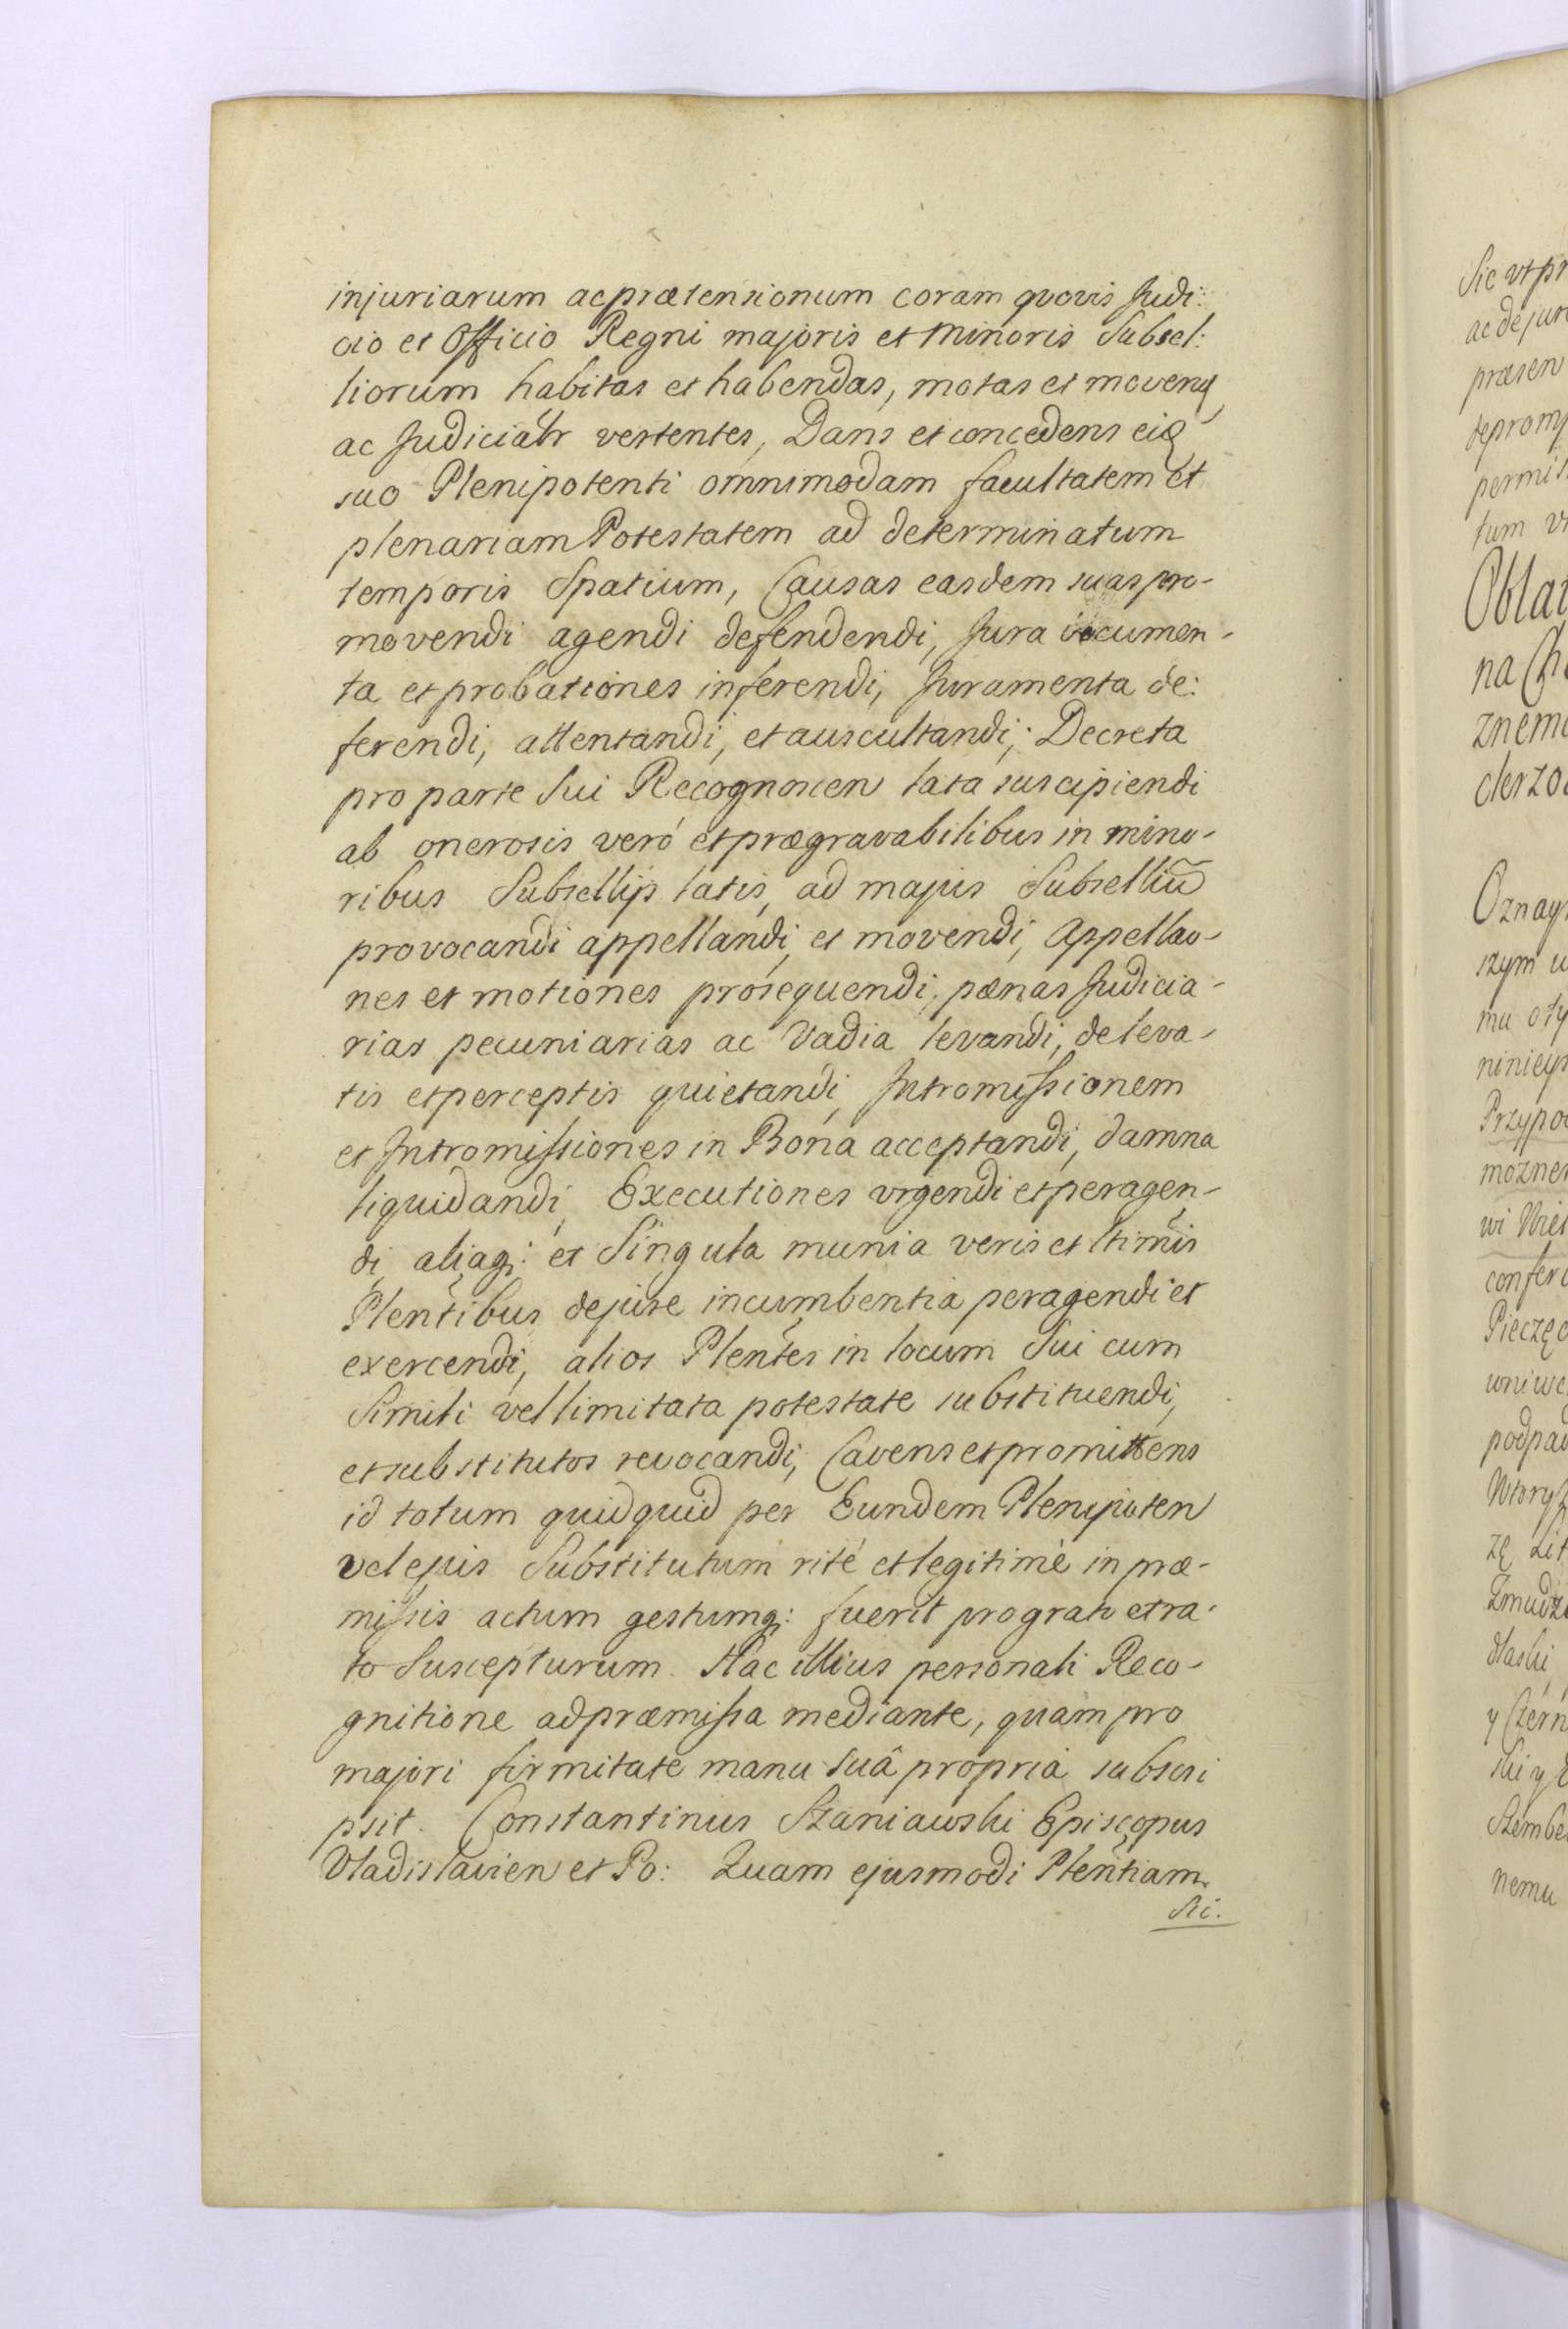 injuriarum ac prætensionum coram quovis Judi:
cio et Officio Regni majoris et Minoris Subsel:
liorum habitas et habendas, motas et movenɖ
ac Judicialr vertentes, Dans et concedens eiꝗ
suo Plenipotenti omnimodam facultatem et
plenariam Potestatem ad determinatum
temporis Spatium, Causas easdem suas pro-
movendi agendi defendendi, Jura documen-
ta et probationes inferendi, Juramenta de:
ferendi, attentandi, et auscultandi; Decreta
pro parte Sui Recognoscen lata suscipiendi
ab onerosis veró et prægravabilibus in mino-
ribus Subsellijs latis, ad majus Subselliũ
provocandi appellandi, et movendi, Appellao-
nes et motiones prosequendi, pænas Judicia-
rias pecuniarias ac Vadia levandi, de leva-
tis et perceptis quietandi, Intromissionem
et Intromissiones in Bona acceptandi, damna
liquidandi, Executiones vrgendi et peragen-
di aliaq: et Singula munia veris et ltimis
Plentibus de jure incumbentia peragendi et
exercendi, alios Plentes in locum Sui cum
Simili vel limitata potestate substituendi,
et substitutos revocandi, Cavens et promittens
id totum quidquid per Eundem Plenipoten
vel ejus Substitutum rité et legitimè in præ-
missis actum gestumq: fuerit pro grato et ra-
to Suscepturum. Hac illius personali Reco-
gnitione ad præmissa mediante, quam pro
majori firmitate manu Suâ propriá subscri
psit. Constantinus Szaniawski Episcopus
Vladislavien et Po: Quam ejusmodi Plentiam
Sic.
Sic vt pr
ac de jure
præsen
deprom
permis
tum v
Oblat
na Ch
znemu
derzo
Oznay
szym u
mu oty
ninieys
Przypo
mozne
wi Wie
confer
Pieczęc
uniwe
podpad
Wtory
zę Lit
Zmudz
dlaski
y Czern
ski y
Szembe
nemu